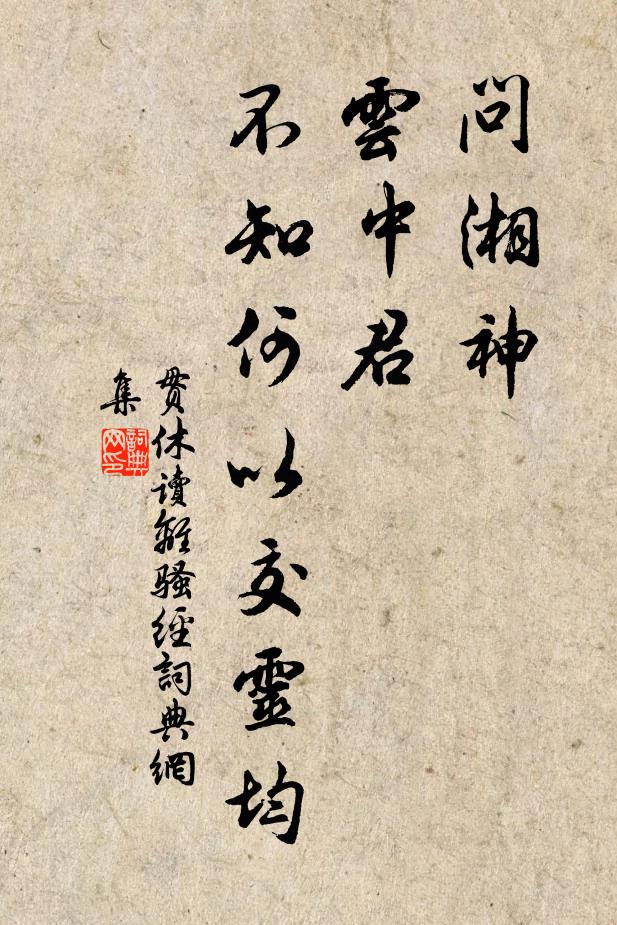 問湘神
雲中君
不知何以交靈均
貫休讀離騷經詞典網
集
詞典
网印